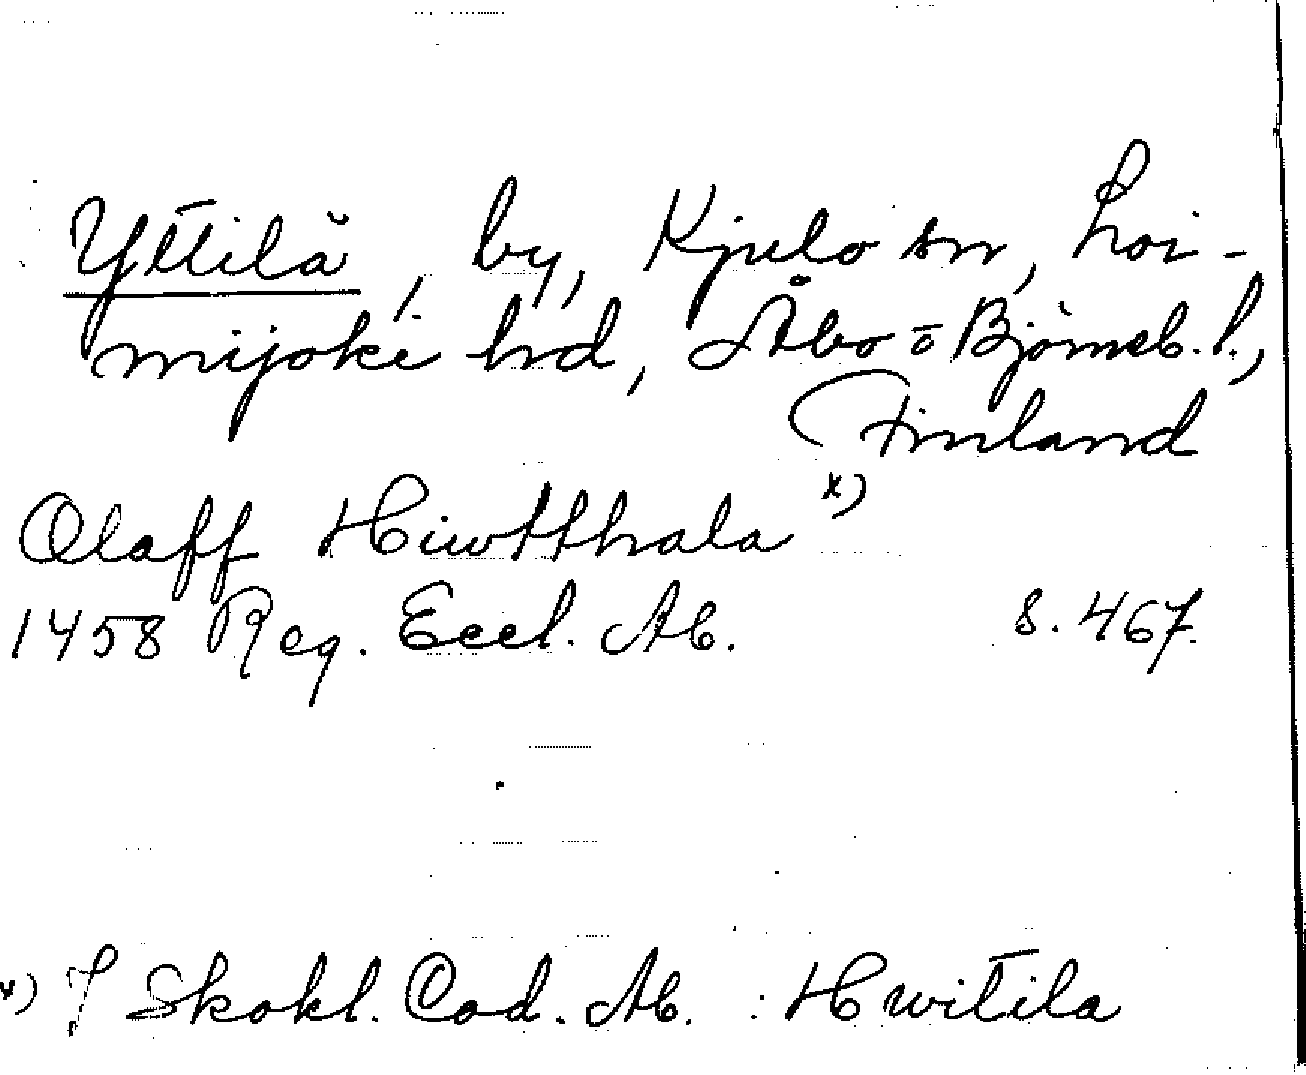 Yttilä, by, Kjulo sn, Loi-
mijoki hd, Åbo o Björneb. l.,
Finland
Olaff Hiwtthala x)
1458 Reg. Eccl. Ab. S. 467.
x) J Skokl. Cod. Ab. : Hwitila